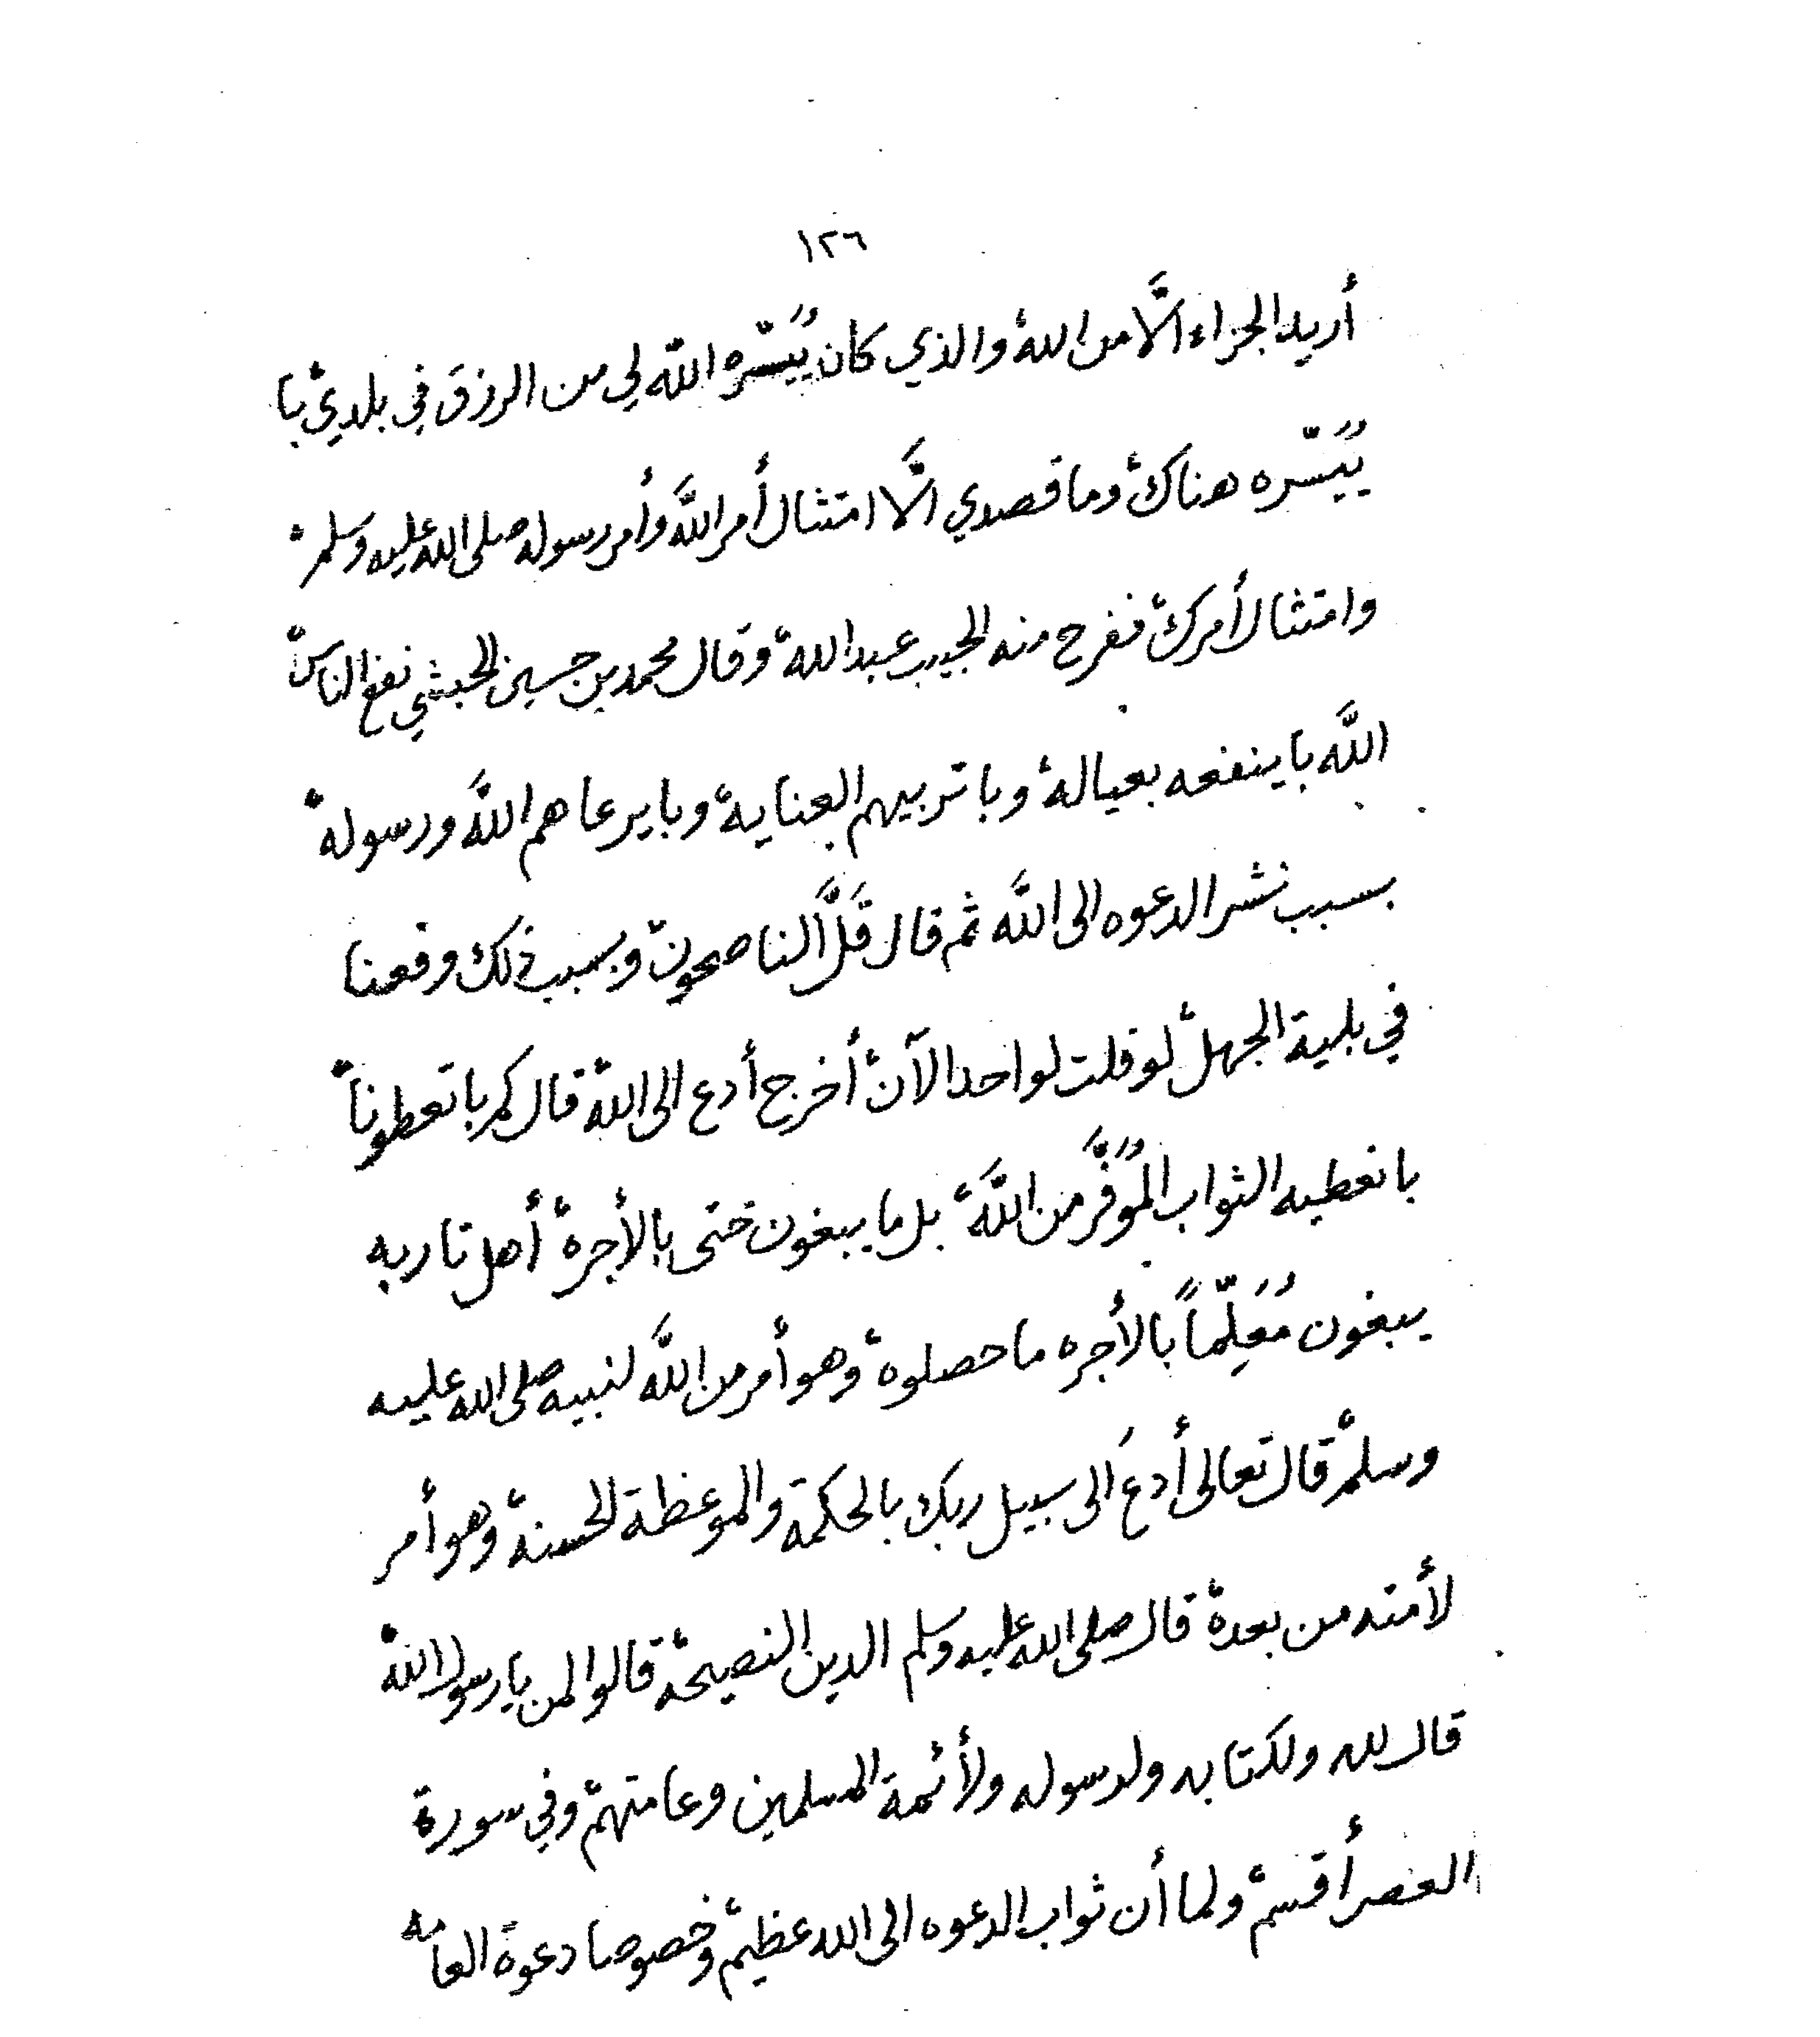 ١٢٦
أريد الجزاء الّا من الله والذي كان يُيَسّره الله لي من الرزق في بلدي با
يُيَسّره هناك وما قصدي الَّا امتثال أمر اللَّه وأمر رسوله صلى الله عليه وسلم
وامتثال أمرك ففرح منه الحبيب عبدالله وقال محمد بن حسين الحبشي نفع الناس
اللَّه با ينفعه بعياله وبا تربيهم العنايه وبا يرعاهم اللَّه ورسوله
بسبب نشر الدعوه الى اللَّه ثم قال قَلَّ الناصحون وبسبب ذلك وقعنا
في بلية الجهل لو قلت لواحد الآن أخرج أدع الى الله قال كم با تعطونا
با نعطيه الثواب المُوَفَّر من اللَّه بل ما يبغون حتى بالأجره أهل تاربه
يبغون مُعَلِّماً بالأجره ما حصلوه وهو أمر من اللَّه لنبيه صلى الله عليه
وسلم قال تعالى أدعُ الى سبيل ربك بالحكمة والموعظة الحسنه وهو أمر
لأمته من بعده قال صلى الله عليه وسلم الدين النصيحه قالوا لمن يا رسول الله
قال لله ولكتابه ولرسوله ولأئمة المسلمين وعامتهم وفي سورة
العصر أقسم ولما أن ثواب الدعوه الى الله عظيم وخصوصا دعوة العامه